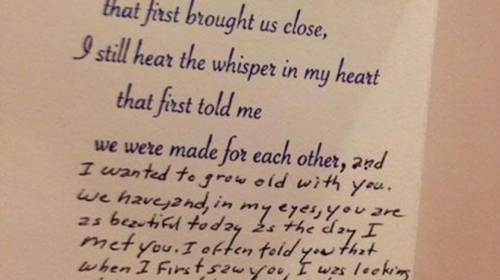 that first brought us close,
I still hear the whisper in my heart
that first told me
we were made for each other, and
I wanted to grow old with you.
We have, and, in my eyes, you are
as beautiful today as the day I
met you. I often told you that
when I first saw you, I was looking